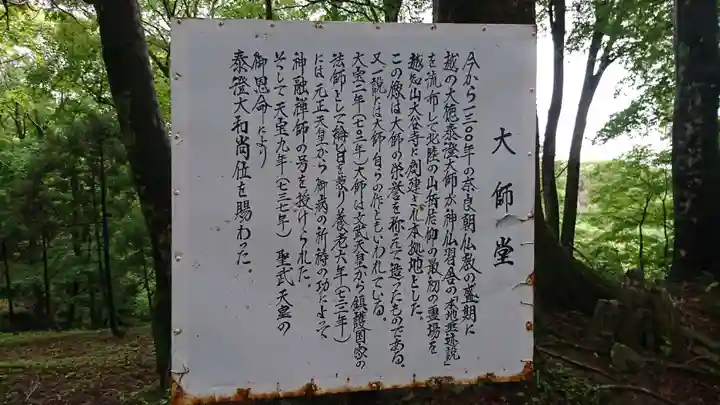 大師堂
今から一三〇〇年の奈良朝仏教の盛期に
越の大徳泰澄大師が神仏習合の「本地垂迹説」
を流布して北陸の山岳信仰の最初の霊場を
越知山大谷寺に創建され本拠地とした。
この像は大師の栄誉を称えて造ったものである。
又一説には大師自らの作ともいわれている。
大宝二年(七〇二年)大師は文武天皇から鎮護国家の
法師として綸旨を賜り養老六年(七二二年)
には元正天皇から御病の祈祷の功によって
神融禅師の号を授けられた。
そして天宝九年(七三七年)聖武天皇の
御恩命により
泰澄大和尚位を賜わった。